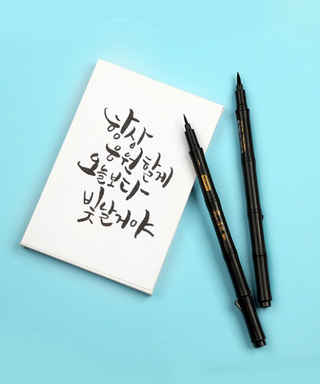 항상
응원할게
오늘보다
빛날거야